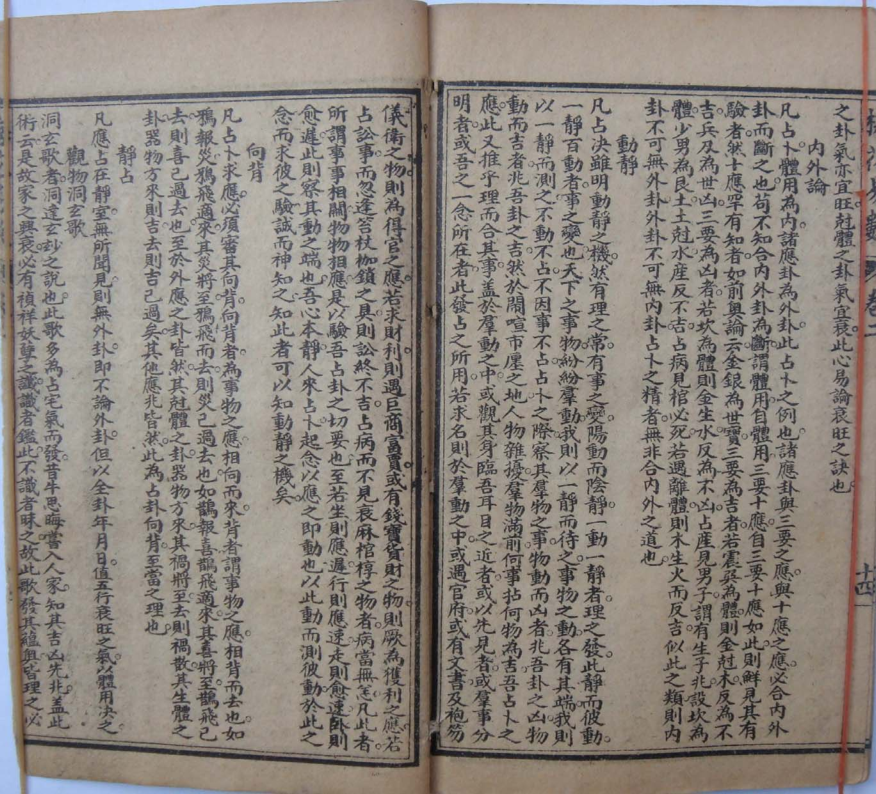 之卦氣亦宜旺尅體之卦氣宜衰此心易論衰旺之訣也
內外論
凡占卜體用為內諸應卦為外此占卜之例也諸應卦與三要之應與十應之應必合內外
卦而斷之也苟不知合內外卦為斷謂體用自體用三要十應自三要十應如此則鮮見其有
驗者然十應罕有知者如前輿論云金銀為世寶三要為吉者若震巽為體則金尅木反為不
吉兵及為世凶三要為凶者若坎為體則金生水反為不凶占產見男子謂有生子兆設坎為
體少男為艮土土尅水產反不吉占病見棺必死若遇離體則木生火而反吉似此之類則內
卦不可無外卦外卦不可無內卦占卜之精者無非合內外之道也
動靜
凡占決雖明動靜之機然有理之常有事之變陽動而陰靜一動一靜者理之發此靜而彼動
一靜百動者事之變也天下之事物紛紛羣動我則以一靜而待之事物之動各有其端我則
以一靜而測之不動不占不因事不占占卜之際察其羣物之事物動而凶者兆吾卦之凶物
動而吉者兆吾卦之吉然於鬧喧市廛之地人物雜擾羣物滿前何事拈何物為吉吾占卜之
應此又推乎理而合其事盖於羣動之中或觀其身臨吾耳目之近者或以先見者或羣事分
明者或吾之一念所在者此發占之所用若求名則於羣動之中或遇官府或有文書及袍笏
儀衛之物則為得官之應若求財利則遇巨商富賈或有錢寶貨財之物則厥為獲利之應若
占訟事而忽逢笞杖枷鎖之具則訟終不吉占病而不見衰麻棺椁之物者病當無恙凡此者
所謂事事相關物物相應是以驗吾占卦之切要也至若坐則應遲行則應速走則愈速卧則
愈遲此則察其動之端也吾心本靜人來占卜起念以應之即動也以此動而測彼動於此之
念而求彼之驗誠而神知之知此者可以知動靜之機矣
向背
凡占卜求應必須審其向背向背者為事物之應相向而來背者謂事物之應相背而去也如
鴉報災鴉飛適來其災將至鴉飛而去則災已過去也如鵲報喜鵲飛適來其喜將至鵲飛已
去則喜已過去也至於外應之卦皆然其尅體之卦器物方來其禍將至去則禍散其生體之
卦器物方來則吉去則吉已過矣其他應兆皆然此為占卦向背至當之理也
靜占
凡應占在靜室無所聞見則無外卦即不論外卦但以全卦年月日值五行衰旺之氣以體用決之
觀物洞玄歌
洞玄歌者洞達玄玅之說也此歌多為占宅氣而發昔牛思晦嘗入人家知其吉凶先兆盖此
術云是故家之興衰必有禎祥妖孽之讖識者鑑此不識者昧之故此歌發其蘊奧皆理之必